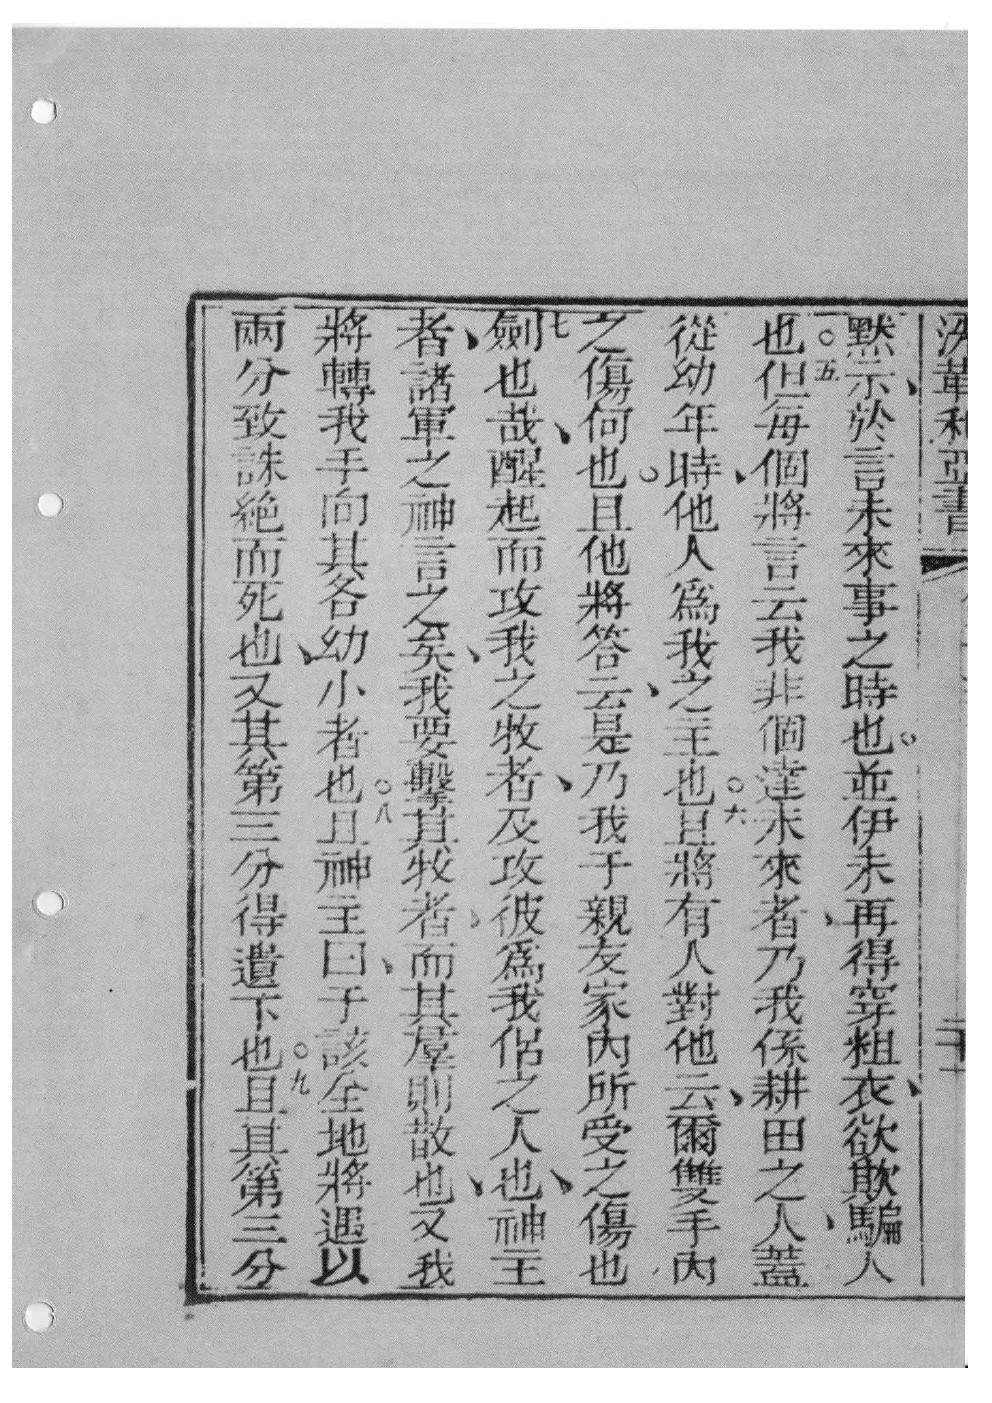 革利亞書
二十一
默示、於言未來事之時也。並伊未再得穿粗衣、欲欺騙人
也○五但每個將言云我非個達未來者、乃我係耕田之人、蓋
從幼年時、他人爲我之主也○六且將有人對他云、爾雙手內
之傷何也。且他將答云、是乃我于親友家內所受之傷也
七劍也哉、醒起而攻我之牧者、及攻彼爲我侶之人也、神主
者、諸軍之神言之矣、我要擊其牧者、而其羣則散也、又我
將轉我手向其各幼小者也○八且神主曰、于該全地將遇以
兩分致誅絕而死也、又其第三分得遺下也○九且其第三分